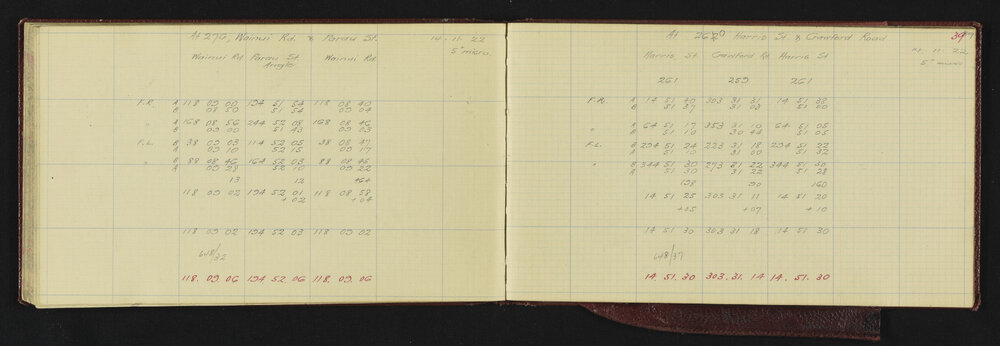 At 276, Wainui Rd. & Parau St. 14. 11. 22
5" micro.
Wainui Rd Parau St Wainui Rd.
Angle
F.R. A 118 09 00 194 51 54 118 08 40
B 08 50 51 54 09 04
" A 168 08 56 244 52 08 168 08 46
B 09 00 51 43 09 03
F.L. A 38 09 03 114 52 05 38 08 47
B 09 10 52 15 09 17
" B 88 08 46 164 52 03 88 08 46
A 09 28 52 10 09 22
13 12 464
118 09 02 194 52 01 118 08 58
+02 +04
118 09 02 194 52 03 118 09 02
648/32
118. 09. 06 194. 52. 06 118. 09. 06
At 260 Harris St & Crawford Road 39
14. 11. 22
5" micro
Harris St Crawford Rd Harris St
261 259 261
F.R. A 14 51 40 303 31 31 14 51 38
B 51 37 31 03 51 00
" A 64 51 17 353 31 10 64 51 05
B 51 10 30 44 51 05
F.L. B 294 51 24 223 31 18 294 51 22
A 51 10 31 00 51 32
" B 344 51 30 273 31 22 344 51 30
A 51 30 31 22 51 28
198 90 160
14 51 25 303 31 11 14 51 20
+05 +07 +10
14 51 30 303 31 18 14 51 30
648/37
14. 51. 30 303. 31. 14 14. 51. 30